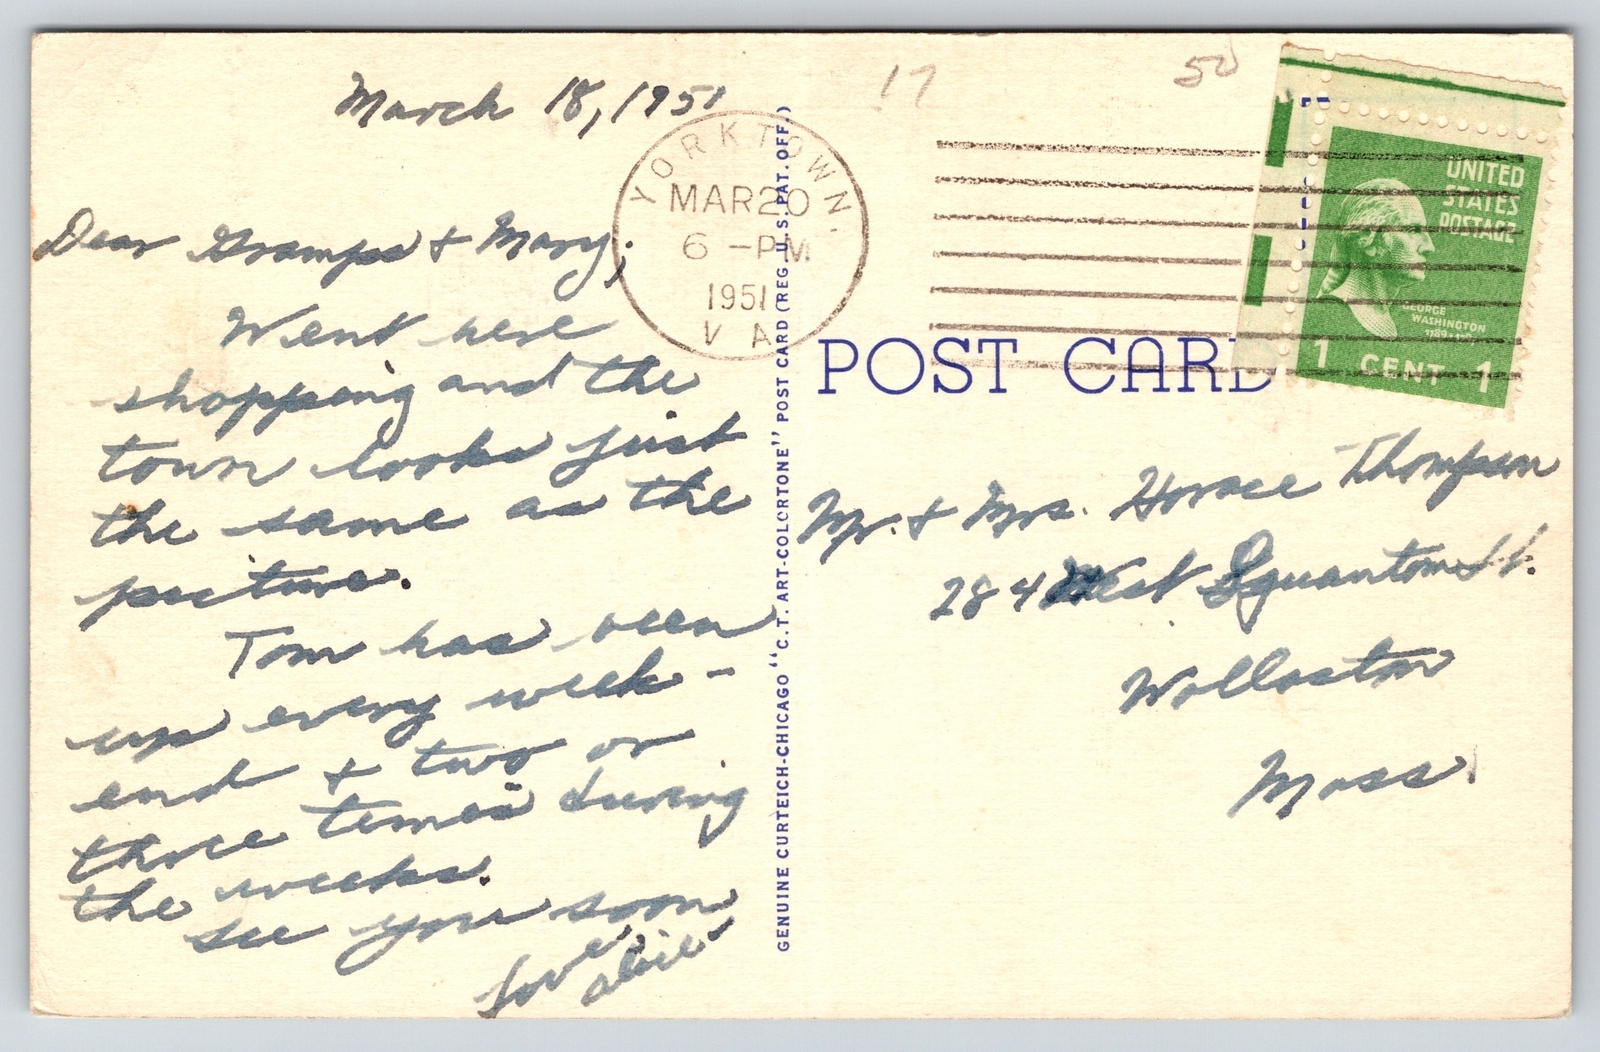 March 18, 1951
Dear Gramps & Mary,
Went here
shopping and the
town looks just
the same as the
picture.
Tom has been
up every week-
end & two or
three times during
the weeks.
see you soon
love
YORKTOWN
MAR 20
6 - PM
1951
VA.
GENUINE CURTEICH-CHICAGO "C.T. ART-COLORTONE" POST CARD (REG. U.S. PAT. OFF.)
17
50
UNITED
STATES
POSTAGE
GEORGE
WASHINGTON
1 CENT 1
POST CARD
Mr. & Mrs. Horace Thompson
284 West Squantom St.
Wollaston
Mass.